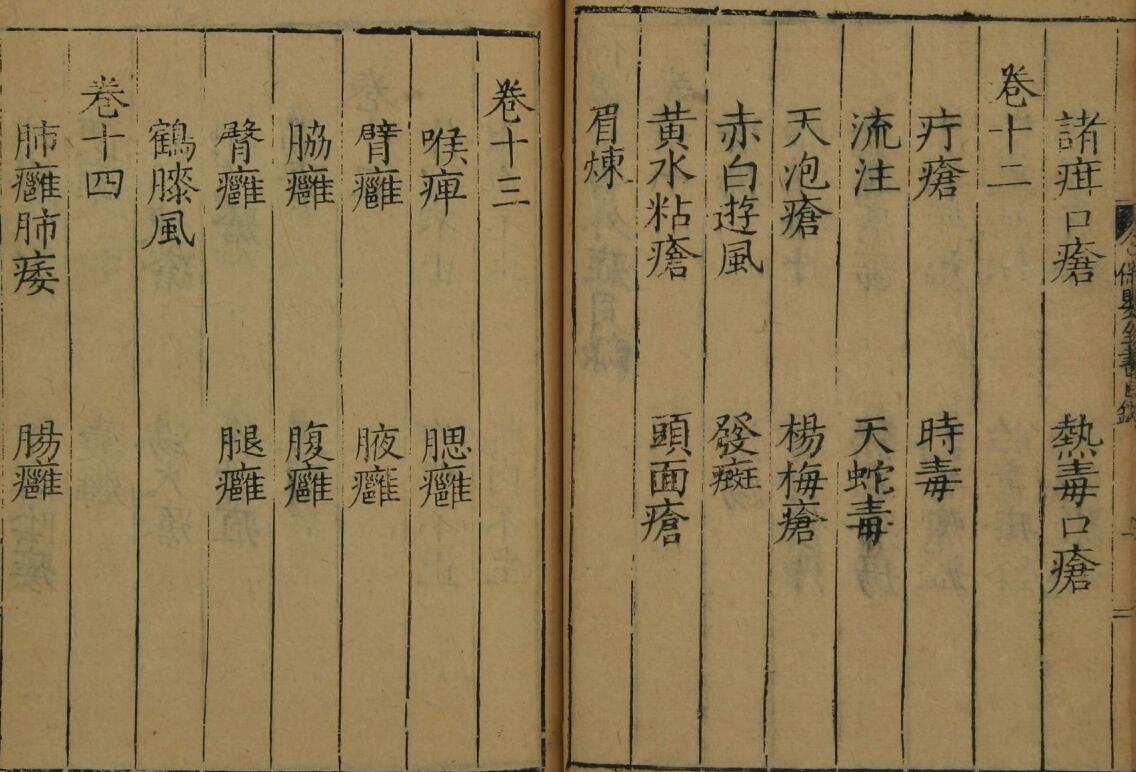 諸疳口瘡　熱毒口瘡
卷十二
疔瘡　時毒
流注　天蛇毒
天泡瘡　楊梅瘡
赤白遊風　發癍
黄水粘瘡　頭面瘡
眉煉
卷十三
喉痺　腮癰
臂癰　腋癰
脇癰　腹癰
臀癰　腿癰
鶴膝風
卷十四
肺癰肺痿　腸癰